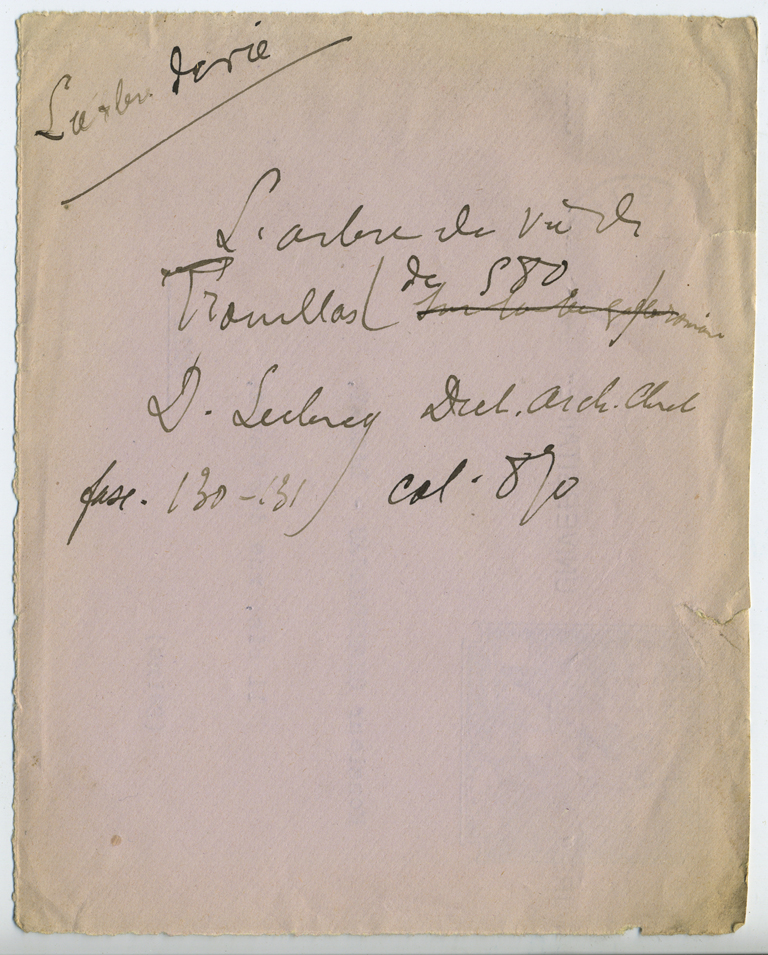 L'arbre de vie
L'arbre de vie de
Trouillas ( de 580
D. Leclercq Dict. Arch. Chret
fasc. 130-131 ) col. 870